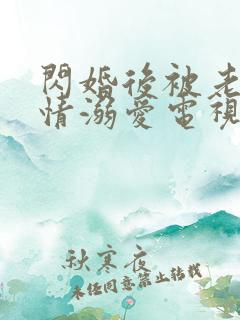 閃婚後被老
情溺愛電視
秋寒夜
未经同意禁止转载